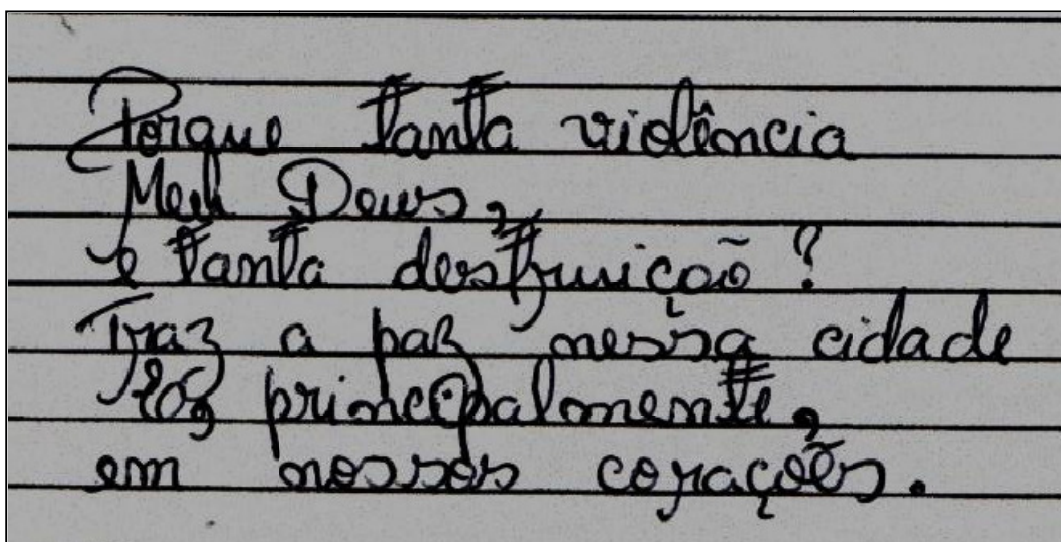 Porque tanta violência
Meu Deus,
e tanta destruição?
Traz a paz nessa cidade
principalmente,
em nossos corações.